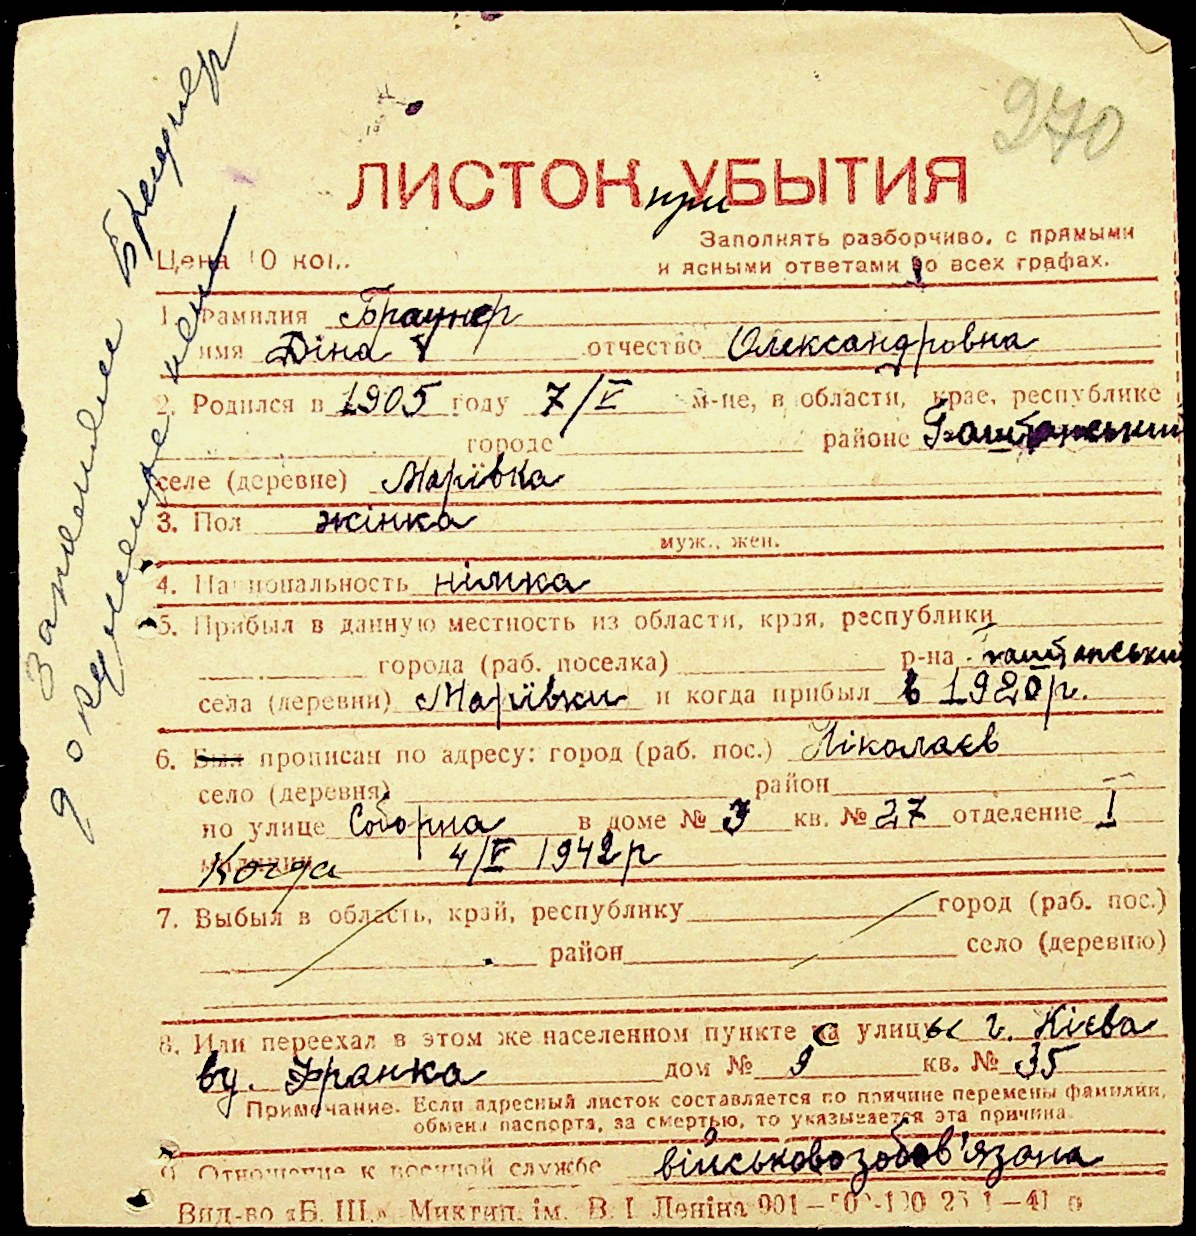 270
ЛИСТОК УБЫТИЯ
при
Цена 10 коп.
Заполнять разборчиво, с прямыми
и ясными ответами во всех графах.
1. Фамилия Браунер
имя Діна отчество Олександровна
2. Родился в 1905 году 7/V м-це, в области, крае, республике
городе районе Баштанський
селе (деревне) Марївка
3. Пол жінка
муж., жен.
4. Национальность німка
5. Прибыл в данную местность из области, края, республики
города (раб. поселка) р-на Баштанський
села (деревни) Марївки и когда прибыл в 1920 р.
6. Был прописан по адресу: город (раб. пос.) Ніколаєв
село (деревня) район
по улице Соборна в доме № 3 кв. № 27 отделение I
милиции Когда 4/V 1942 р
7. Выбыл в область, край, республику город (раб. пос.)
район село (деревню)
8. Или переехал в этом же населенном пункте с улицы г. Кієва
ву. Франка дом № 9 кв. № 35
Примечание. Если адресный листок составляется по причине перемены фамилии,
обмена паспорта, за смертью, то указывается эта причина.
9. Отношение к военной службе військовозобов'язана
Вид-во «Б. Ш.» Миктип. ім. В. І. Леніна
Браунер
документ